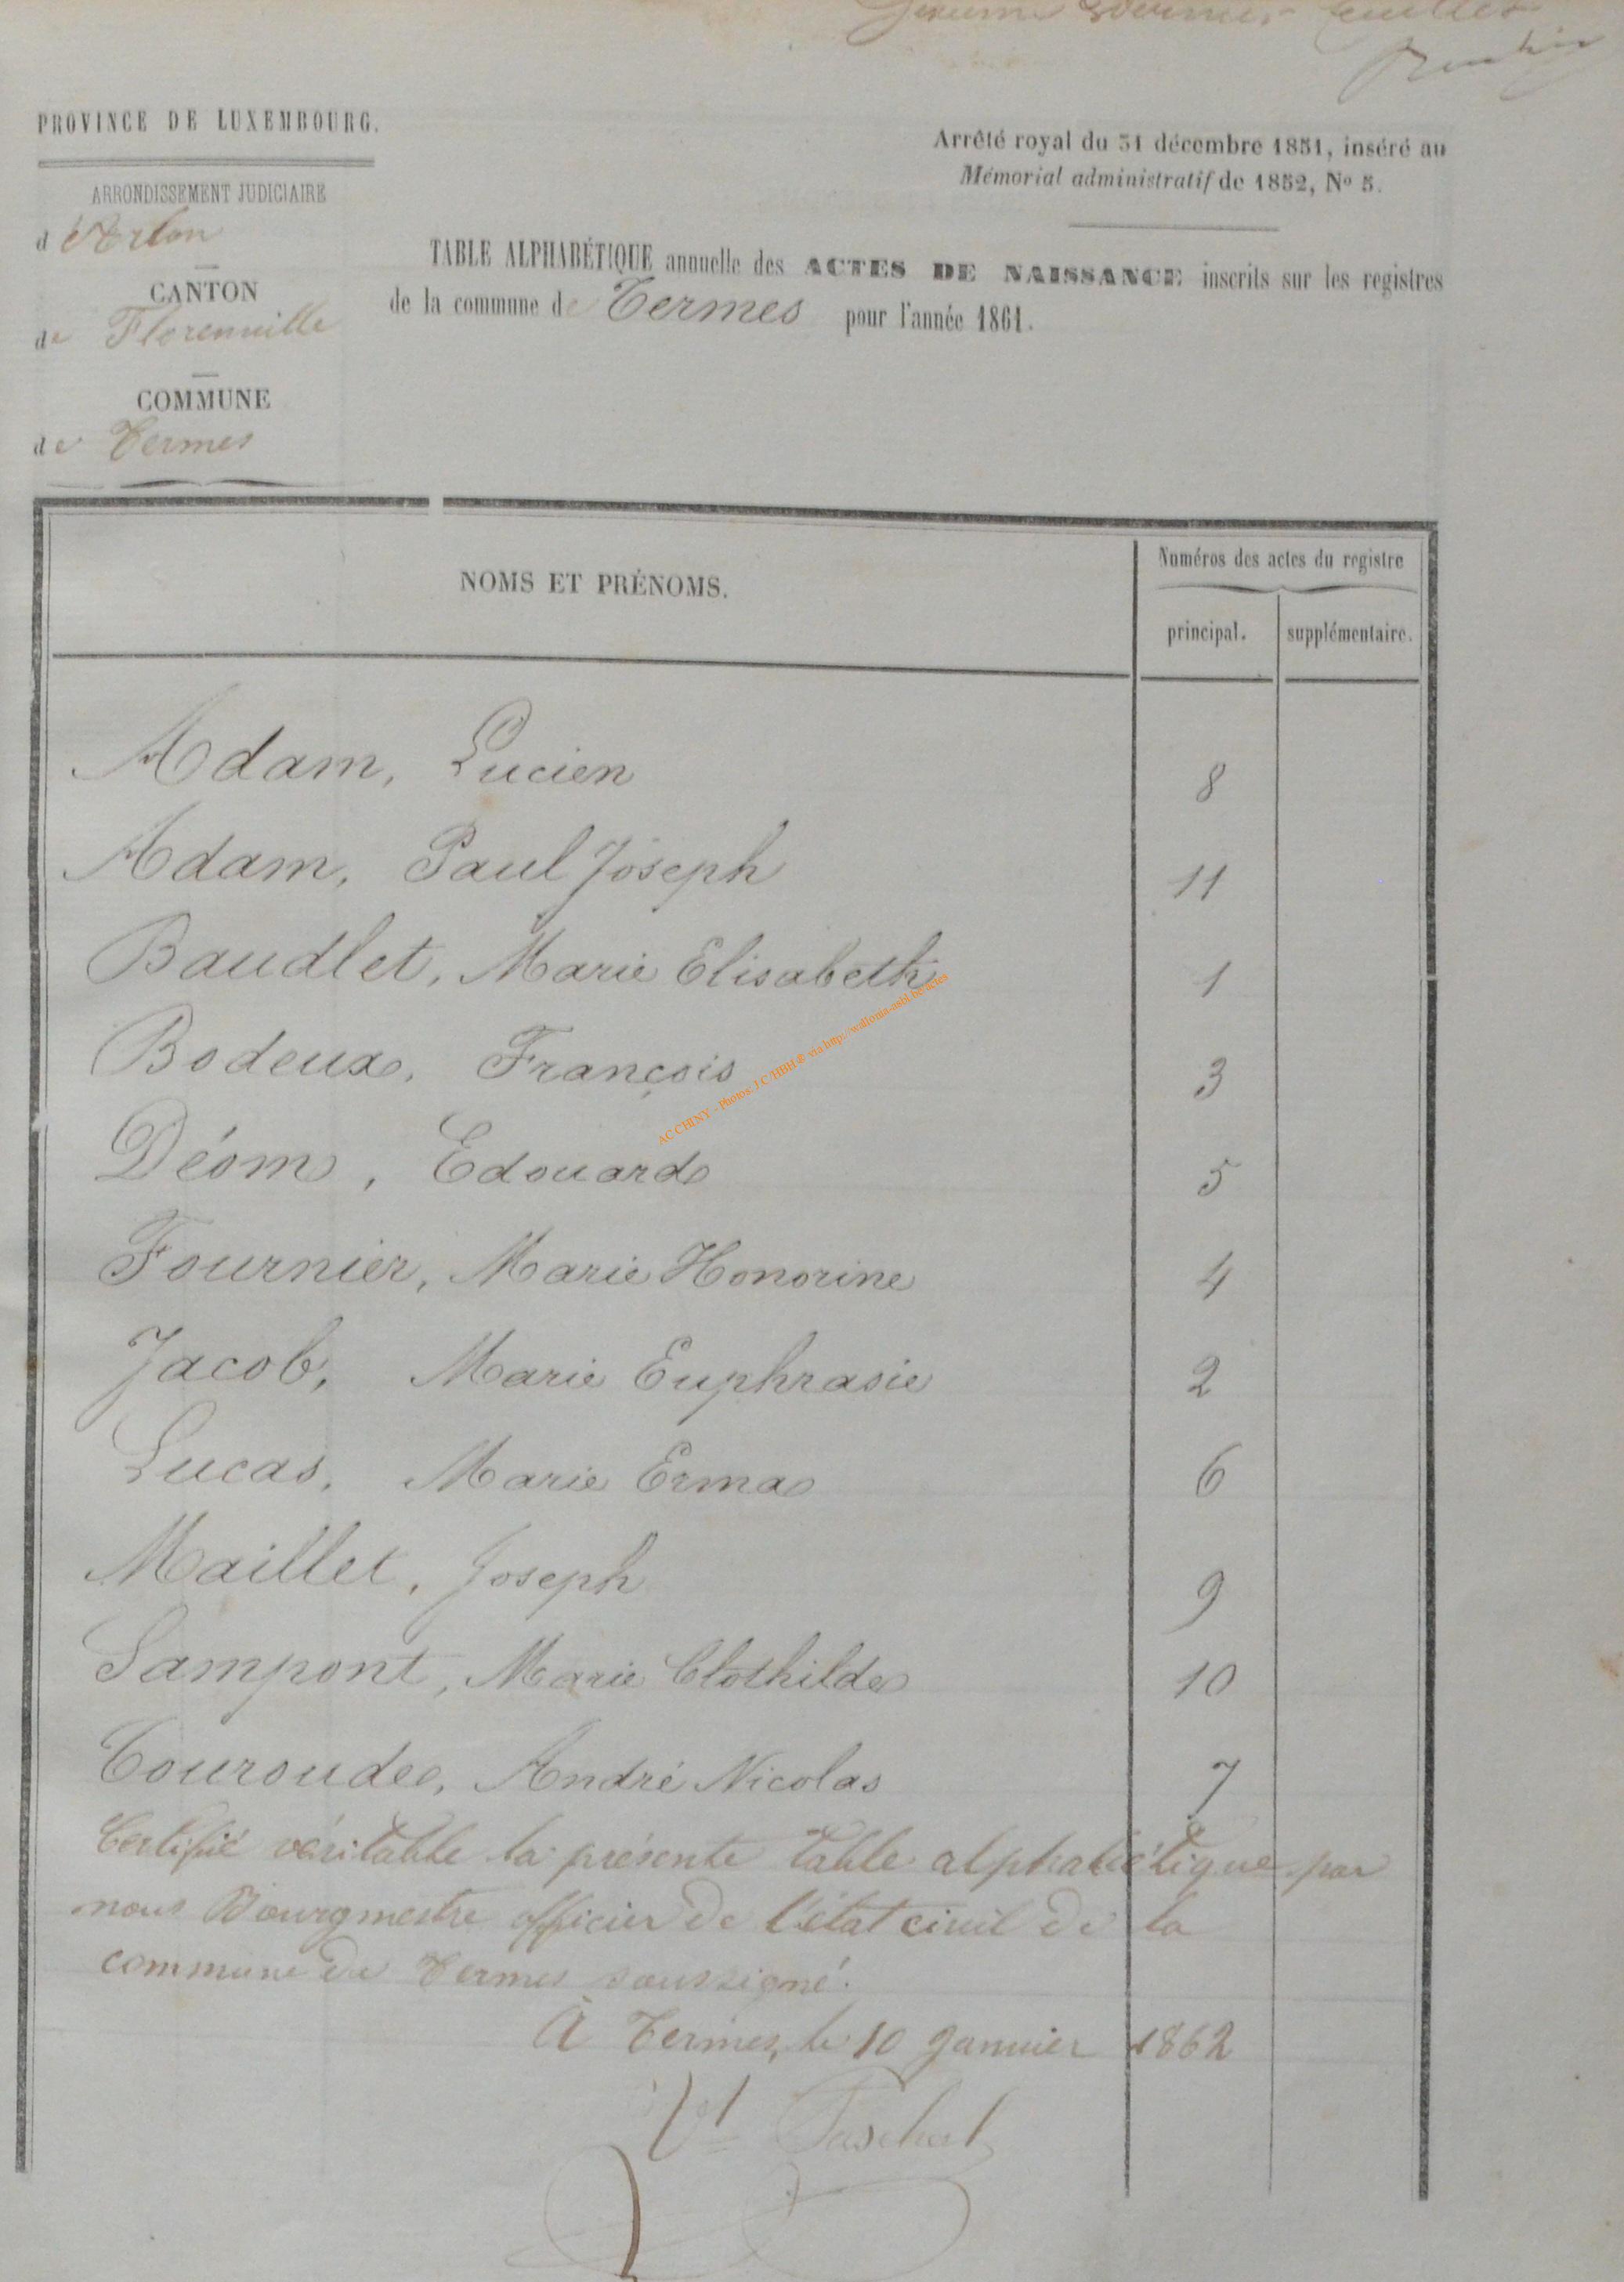 PROVINCE DE LUXEMBOURG.
ARRONDISSEMENT JUDICIAIRE
d'Arlon
CANTON
de Florenville
COMMUNE
de Termes
Arrêté royal du 31 décembre 1851, inséré au
Mémorial administratif de 1852, No 5.
TABLE ALPHABÉTIQUE annuelle des ACTES DE NAISSANCE inscrits sur les registres
de la commune de Termes pour l'année 1861.
NOMS ET PRÉNOMS.
Numéros des actes du registre
principal. supplémentaire.
Adam, Lucien 8
Adam, Paul Joseph 11
Baudlet, Marie Elisabeth 1
Bodeux, François 3
Déom, Edouard 5
Fournier, Marie Honorine 4
Jacob, Marie Euphrasie 2
Lucas, Marie Erma 6
Maillet, Joseph 9
Sampont, Marie Clothilde 10
Touroude, André Nicolas 7
Certifié véritable la présente table alphabétique par
nous Bourgmestre officier de l'état civil de la
commune de Termes soussigné.
A Termes, le 10 Janvier 1862
AC CHINY - Photos J.C/HBH © via http://walloma-asbl.be/actes